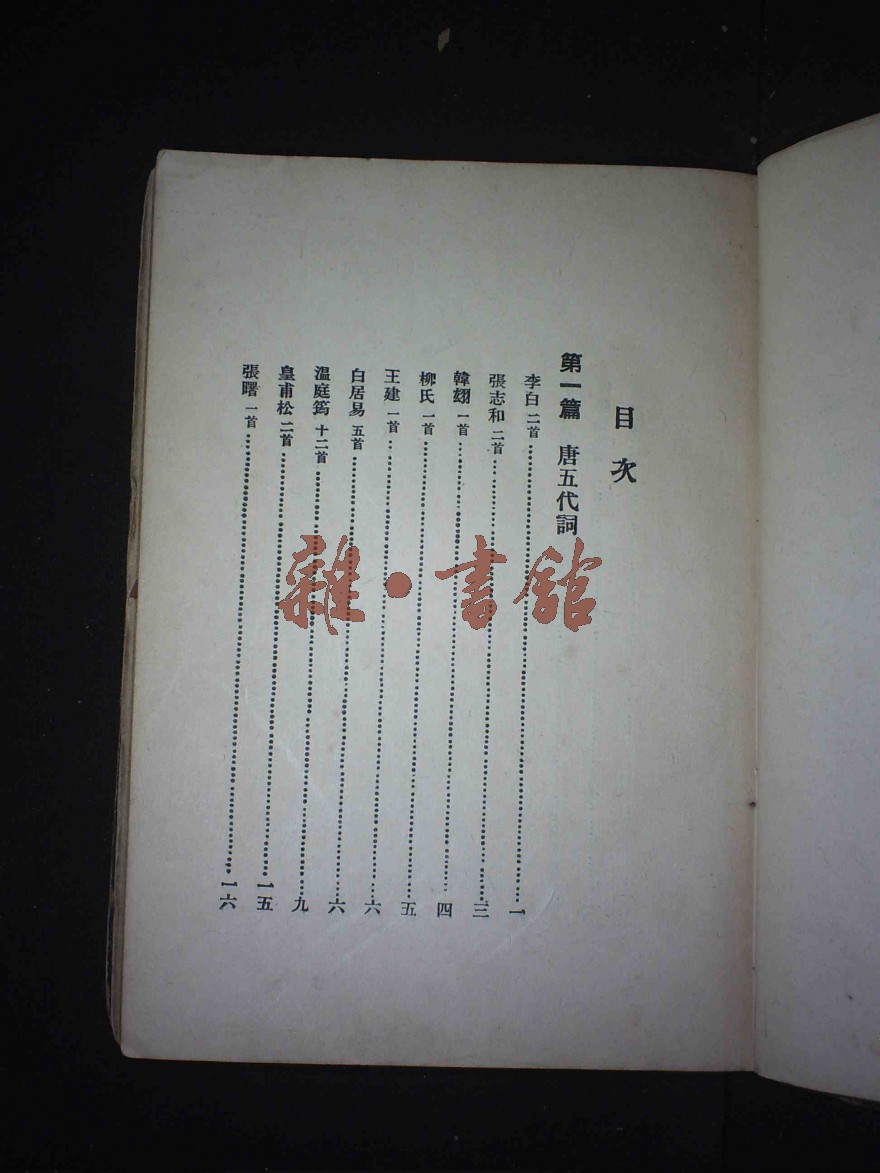 目次
第一篇 唐五代詞
李白 二首……一
張志和 二首……三
韓翃 一首……四
柳氏 一首……五
王建 一首……六
白居易 五首……六
溫庭筠 十二首……九
皇甫松 二首……一五
張曙 一首……一六
雜·書館